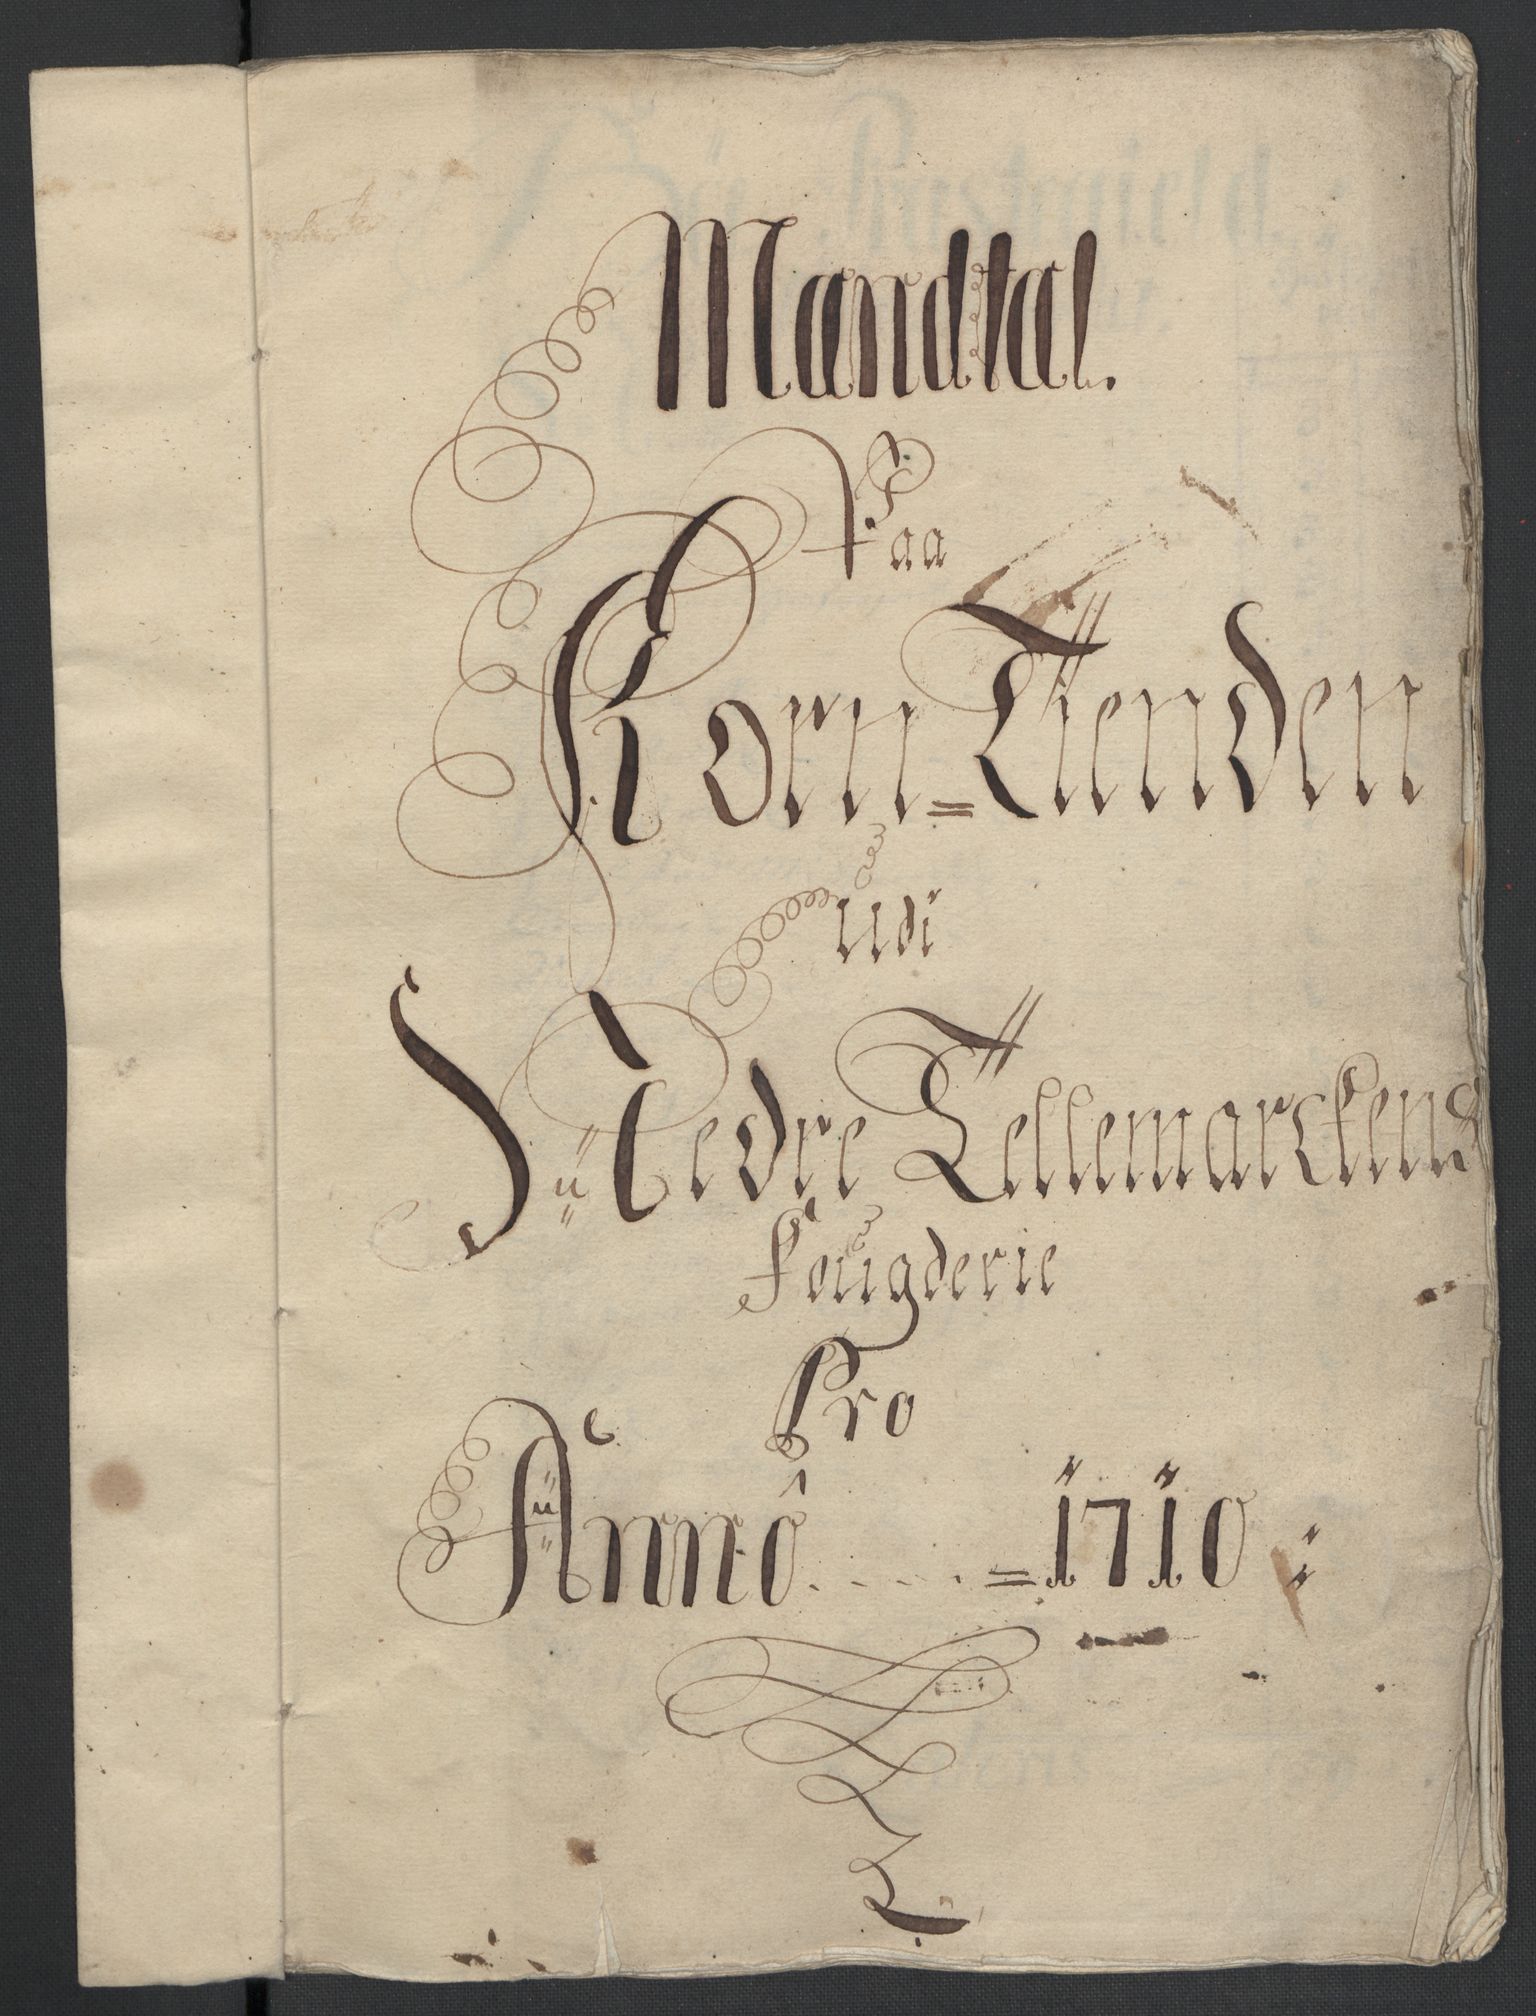 Mandtal.
Paa
Korn=Tienden
udi
Nedre Tellemarckens
Fougderie
Pro
Annô ..... =1710: